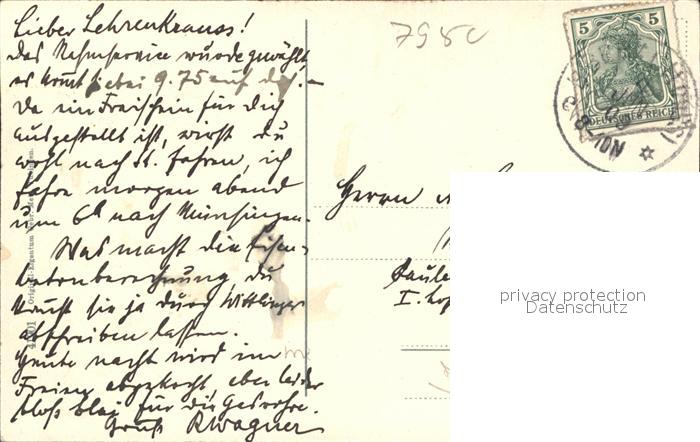 Lieber Lehrenkrauss!
Das Rahmservice wurde gewählt
es kommt bei 9.75 auf d
Da ein Freischein für Dich
ausgestellt ist, wirst du
wohl nach St. fahren, ich
fahre morgen abend
um 6h nach Münsingen.
Was macht die Eisen-
betonberechnung, du
kannst sie ja durch Wittlinger
abschreiben lassen.
Heute nacht wird im
Freien abgekocht, aber leider
bloß für die Gewehre.
Gruß RWagner
795 c
5 5
DEUTSCHES REICH
8-10 N
Herrn
Paule
I.
privacy protection
Datenschutz
Original-Eigentum